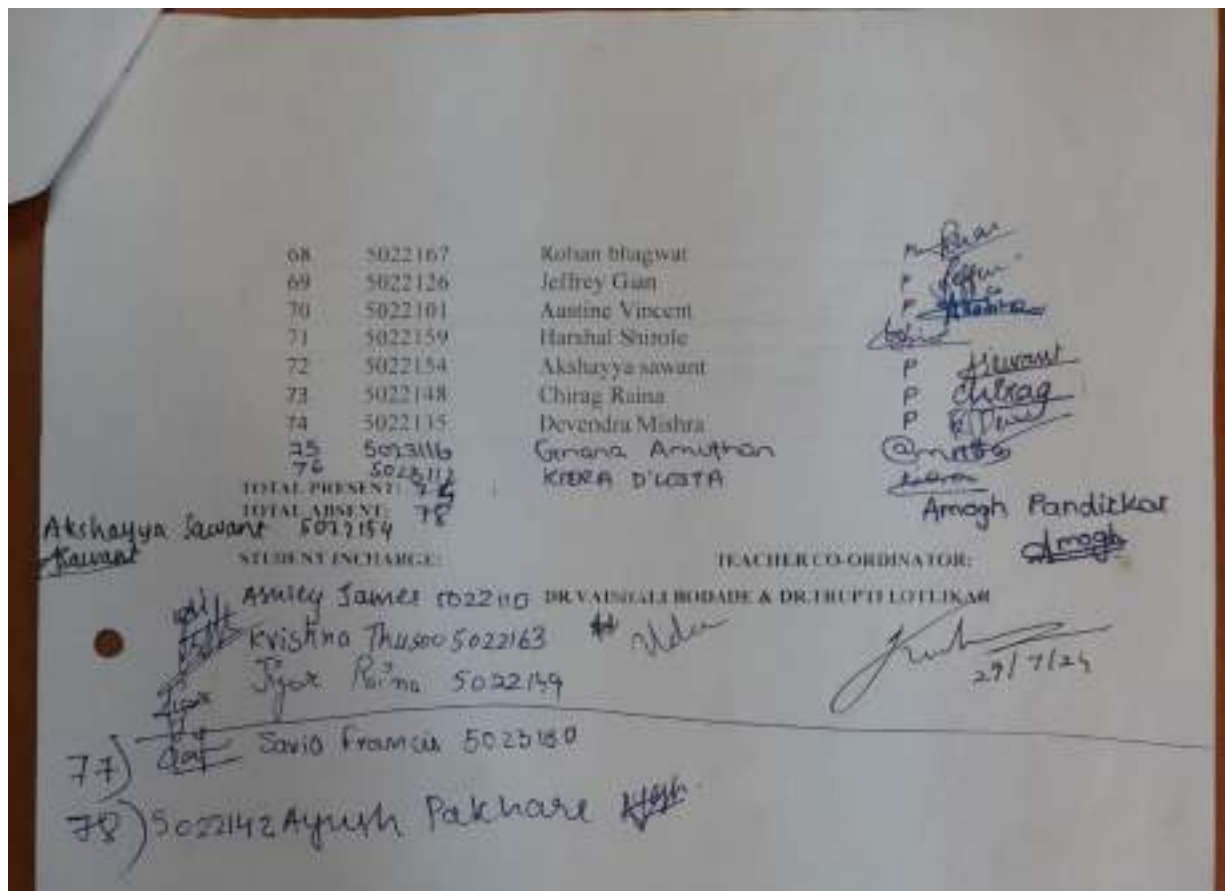 68 5022167 Rohan bhagwat P
69 5022126 Jeffrey Gian P
70 5022101 Austine Vincent P
71 5022159 Harshal Shirole
72 5022154 Akshayya sawant P Sawant
73 5022148 Chirag Raina P Chirag
74 5022135 Devendra Mishra P
75 5023116 Gnana Amuthan
76 5023112 KIERA D'COSTA
TOTAL PRESENT:
TOTAL ABSENT: 78
Amogh Panditkar
Akshayya Sawant 5022154
Sawant
STUDENT INCHARGE: TEACHER CO-ORDINATOR: Amogh
Ashley James 5022110 DR.VAISHALI BODADE & DR.TRUPTI LOTLIKAR
Krishna Thusoo 5022163
Jigar Raina 5022149
29/7/24
77) Savio Francis 5023180
78) 5022142 Ayush Pakhare